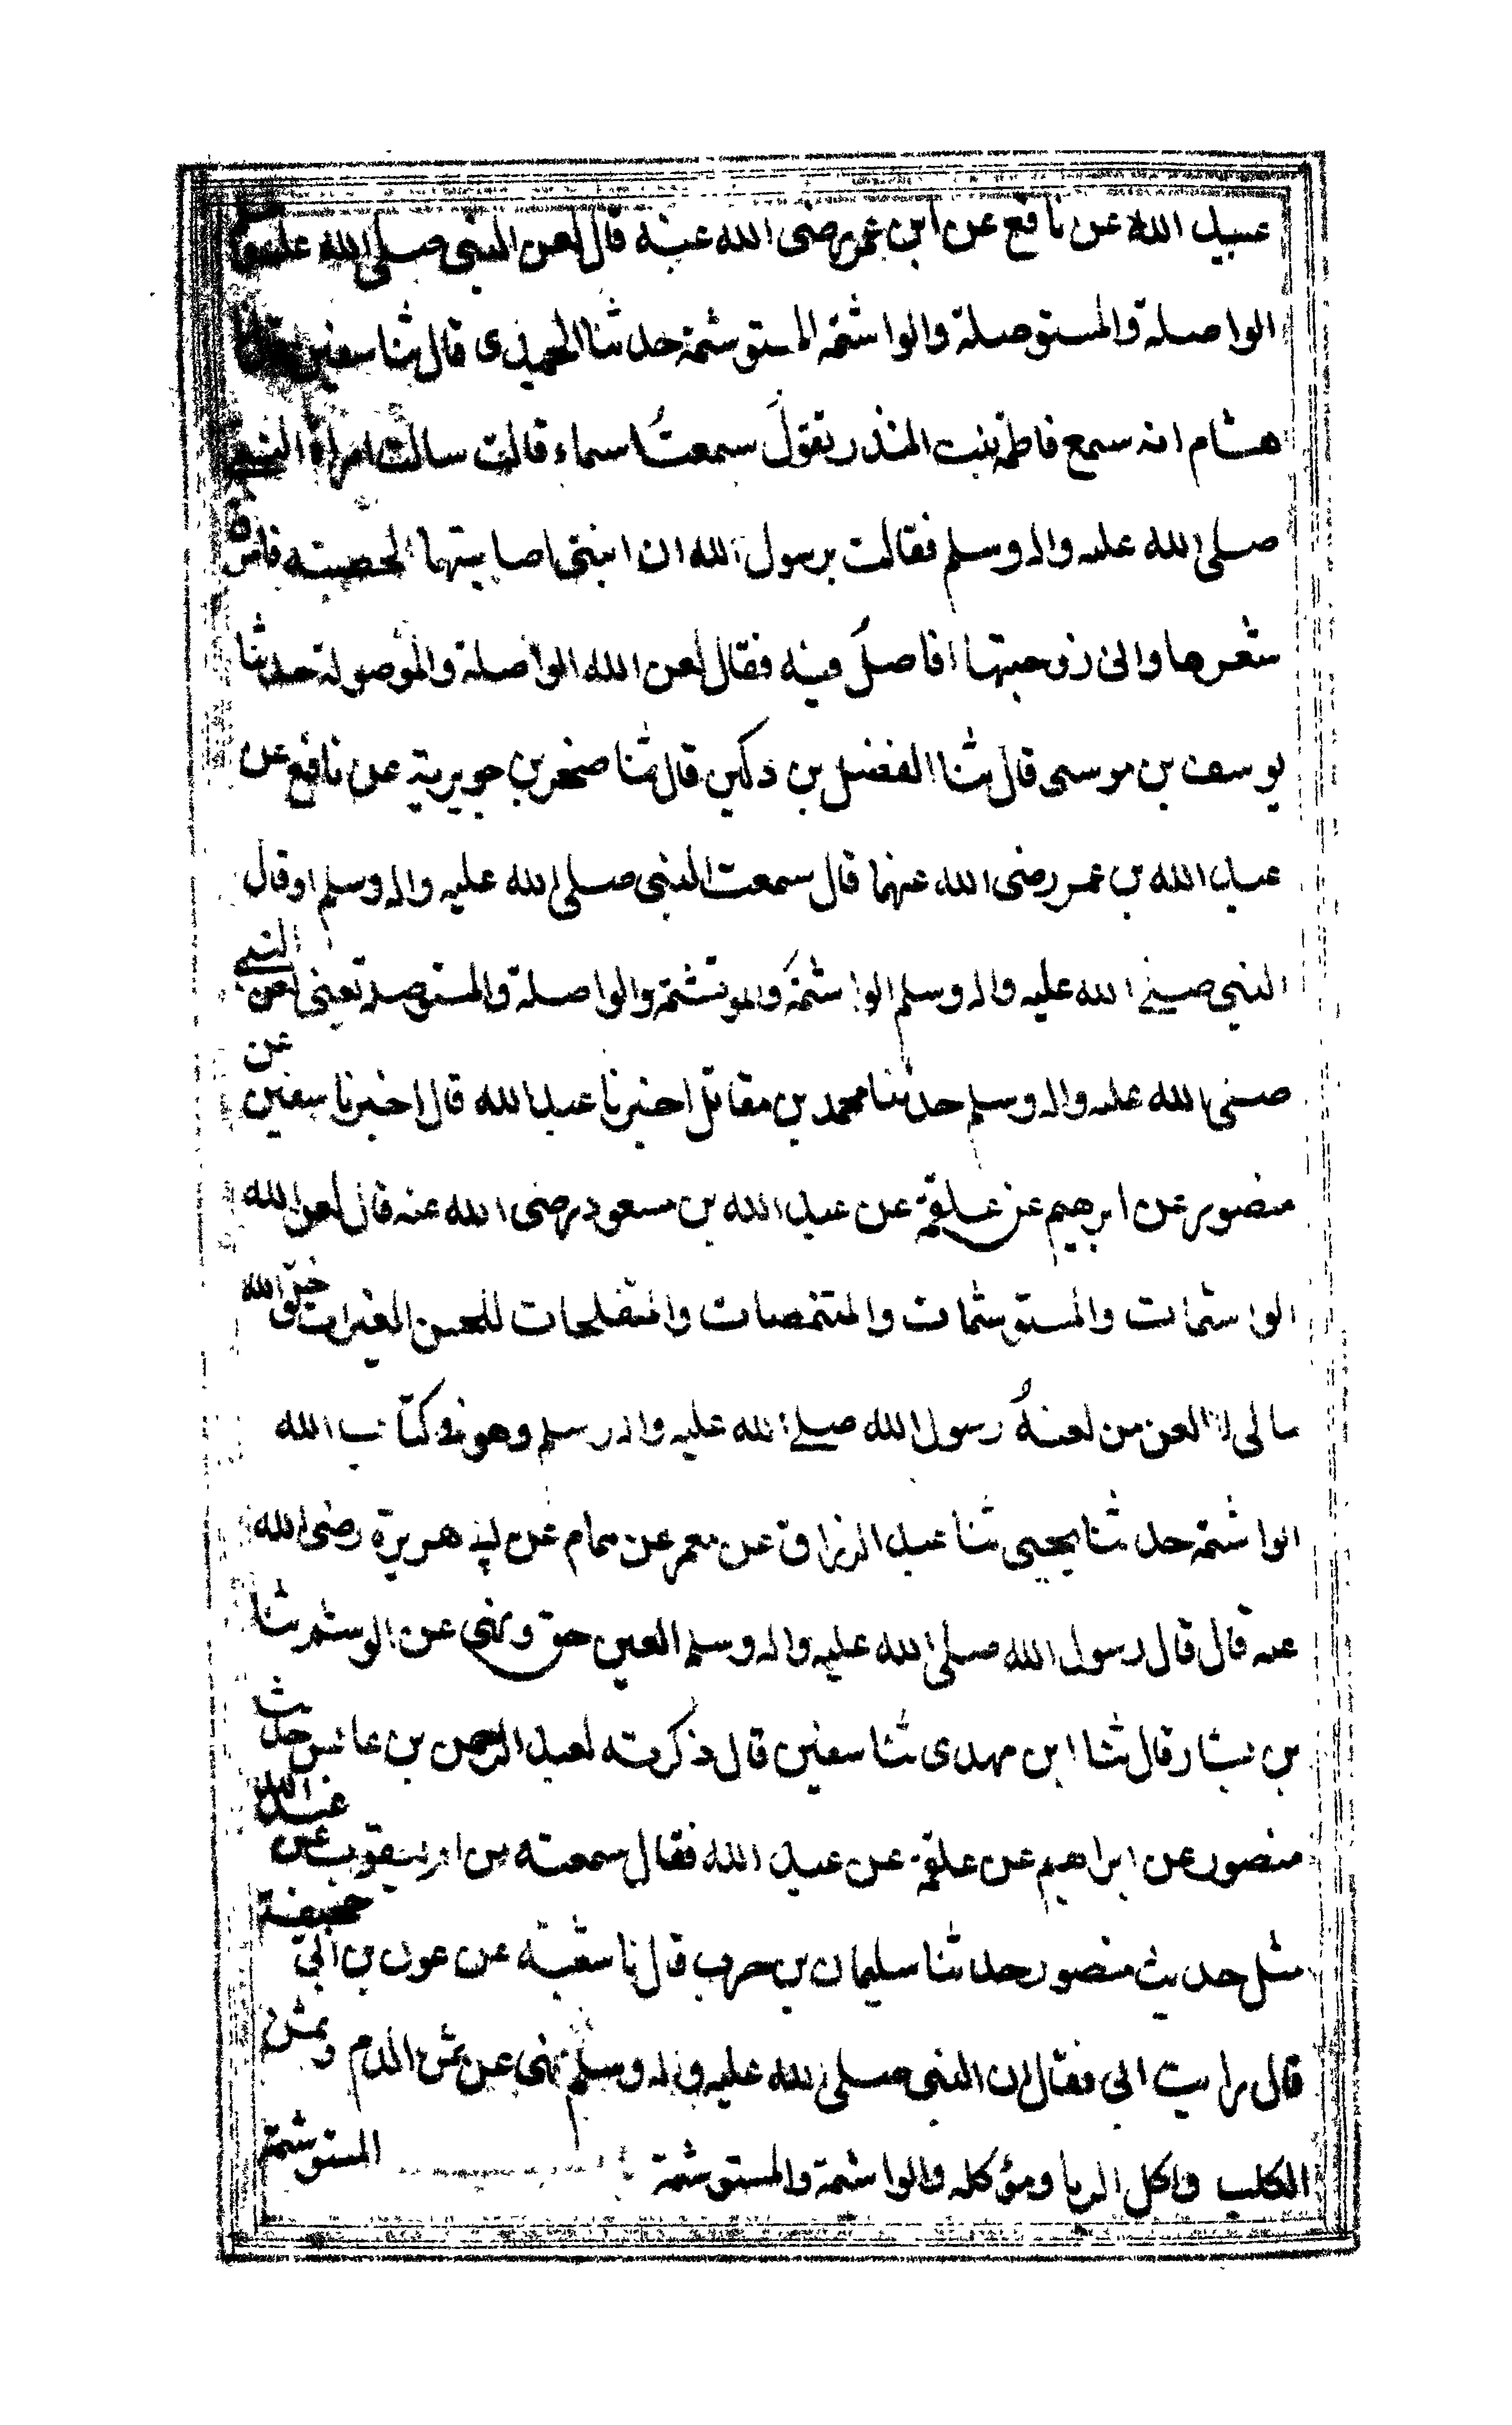 عبيد الله عن نافع عن ابن عمر رضى الله عنه قال لعن النبى صلى الله عليه
الواصلة والمستوصلة والواشمة المستوشمة حدثنا الحميدى قال ثنا سفين
هشام انه سمع فاطمة بنت المنذر تقول سمعت اسماء قالت سالت امراة النبى
صلى الله عليه واله وسلم فقالت يرسول الله ان ابنتى اصابتها الحصبته فامرق
شعرها وانى زوجتها افاصل فيه فقال لعن الله الواصلة والموصولة حدثنا
يوسف بن موسى قال ثنا الفضل بن دكين قال ثنا صخر بن جويرية عن نافع عن
عبد الله بن عمر رضى الله عنهما قال سمعت النبى صلى الله عليه واله وسلم او قال
النبى صلى الله عليه واله وسلم الواشمة والموتشمة والواصلة والمستوصلة يعنى لعن النبى
صلى الله عليه واله وسلم حدثنا محمد بن مقاتل اخبرنا عبد الله قال اخبرنا سفين عن
منصور عن ابرهيم عن علقمة عن عبد الله بن مسعود رضى الله عنه قال لعن الله
الواشمات والمستوشمات والمتنمصات والمتفلجات للحسن المغيرات خلق الله
مالى لا العن من لعنه رسول الله صلى الله عليه واله وسلم وهو فى كتاب الله
الواشمة حدثنا يحيى ثنا عبد الرزاق عن معمر عن همام عن ابى هريرة رضى الله
عنه قال قال رسول الله صلى الله عليه واله وسلم العين حق ونهى عن الوشم ثنا
بن بشار قال ثنا ابن مهدى ثنا سفين قال ذكرت لعبد الرحمن بن عابس حديث
منصور عن ابراهيم عن علقمة عن عبد الله فقال سمعته من ام يعقوب عن عبد الله
مثل حديث منصور حدثنا سليمان بن حرب قال نا شعبة عن عون بن ابى جحيفة
قال رايت ابى فقال ان النبى صلى الله عليه واله وسلم نهى عن ثمن الدم وثمن
الكلب واكل الربا ومؤكله والواشمة والمستوشمة المستوشمة